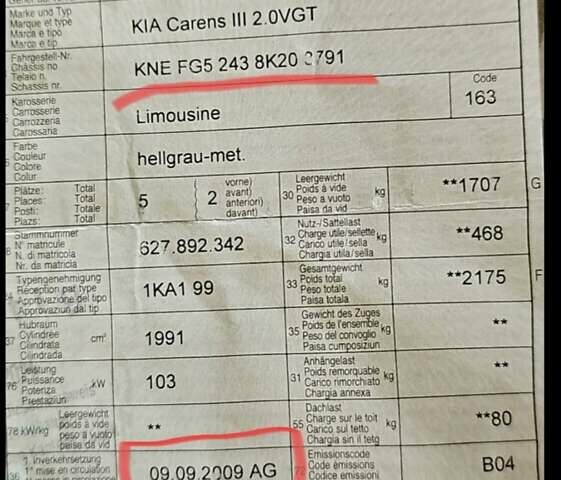 Marke und Typ
Marque et type
Marca e tipo
Marca e tip
KIA Carens III 2.0VGT
Fahrgestell-Nr.
Châssis no
Telaio n.
Schassis nr.
KNE FG5 243 8K20 3791
Karosserie
Carrosserie
Carrozzeria
Carossaria
Limousine
Code
163
Farbe
Couleur
Colore
Colur
hellgrau-met.
Plätze: Total
Places: Total
Posti: Totale
Plazs: Total
5
2
vorne)
avant)
anteriori)
davant)
30
Leergewicht
Poids à vide
Peso a vuoto
Paisa da vid
kg
**1707
G
Stammnummer
N° matricule
N. di matricola
Nr. da matricla
627.892.342
32
Nutz-/Sattellast
Charge utile/sellette
Carico utile/sella
Chargia utila/sella
kg
**468
Typengenehmigung
Réception par type
Approvazione del tipo
Approvaziun dal tip
1KA1 99
33
Gesamtgewicht
Poids total
Peso totale
Paisa totala
kg
**2175
F
37
Hubraum
Cylindrée
Cilindrata
Cilindrada
cm³
1991
35
Gewicht des Zuges
Poids de l'ensemble
Peso del convoglio
Paisa cumposiziun
kg
**
76
Leistung
Puissance
Potenza
Prestaziun
kW
103
31
Anhängelast
Poids remorquable
Carico rimorchiato
Chargia annexa
kg
**
78 kW/kg
Leergewicht
poids à vide
peso a vuoto
paisa da vid
**
55
Dachlast
Charge sur le toit
Carico sul tetto
Chargia sin il tetg
kg
**80
36
1. Inverkehrsetzung
1re mise en circulation
09.09.2009 AG
72
Emissionscode
Code émissions
Codice emissioni
B04